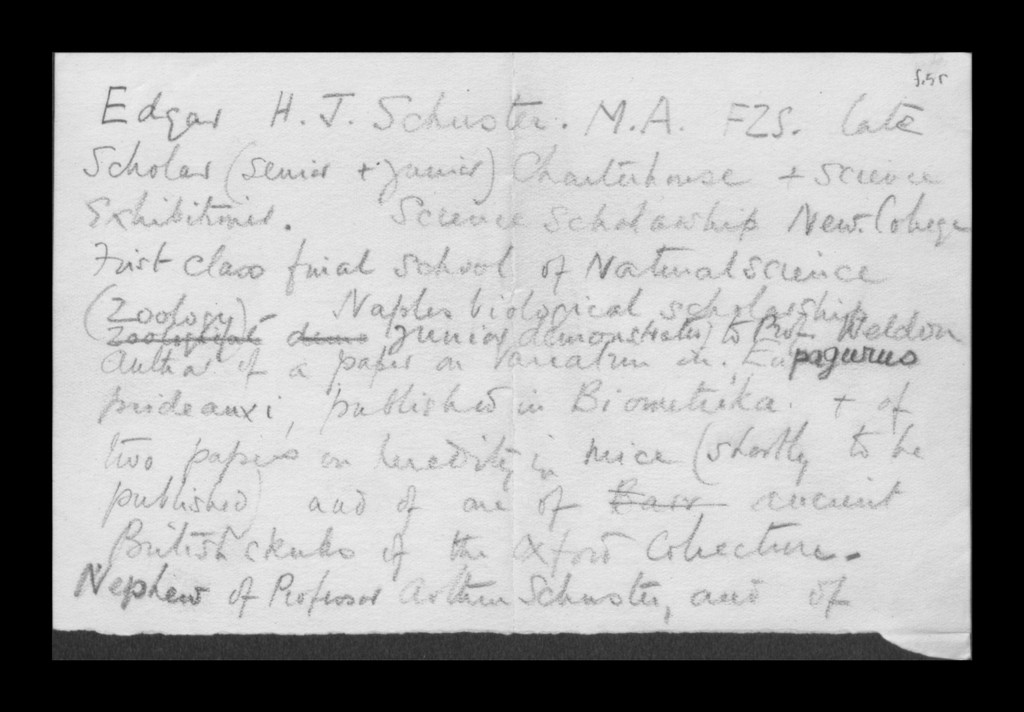 f.5r
Edgar H. J. Schuster. M.A. FZS. late
Scholar (senior + junior) Charterhouse + Science
Exhibitioner. Science Scholarship New. College
First class final school of Natural science
(Zoology) - Naples biological scholarship
Zoological demo junior demonstrator to Prof. Weldon
Author of a paper on variation in Eupagurus
prideauxi, published in Biometrika. + of
two papers on heredity in mice (shortly to be
published) and of one of ancient
British skulls of the Oxford Collection.
Nephew of Professor Arthur Schuster, and of